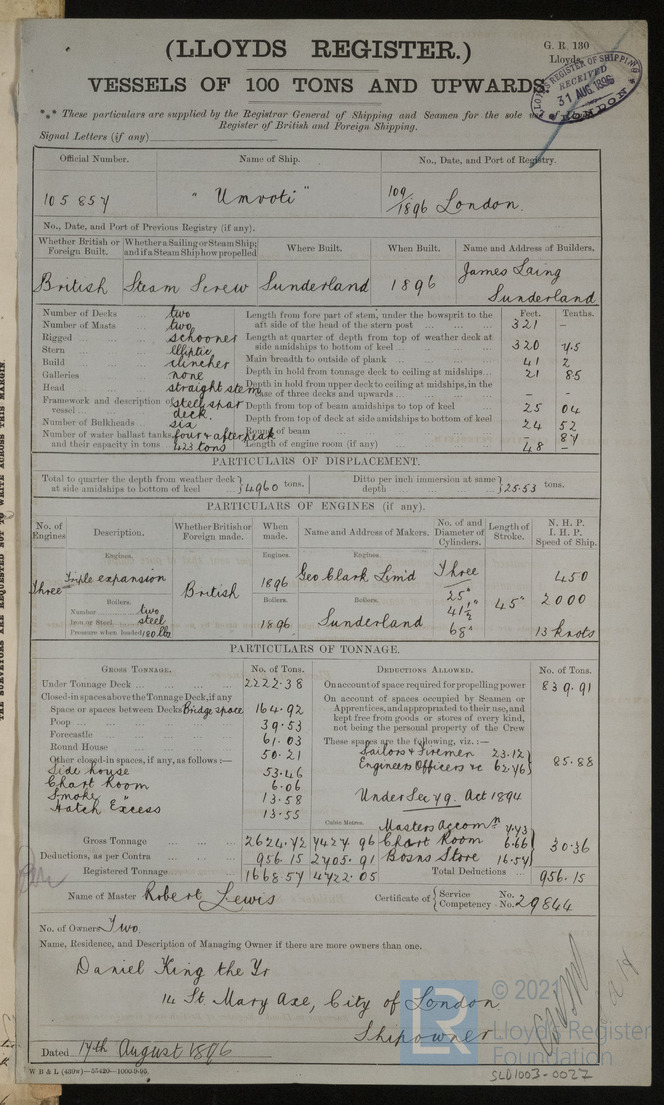 (LLOYDS REGISTER.)
G. R. 130
Lloyds
VESSELS OF 100 TONS AND UPWARDS
LLOYD'S REGISTER OF SHIPPING
RECEIVED
31 AUG. 1896
LONDON
*** These particulars are supplied by the Registrar General of Shipping and Seamen for the sole use of
Register of British and Foreign Shipping.
Signal Letters (if any)
Official Number. Name of Ship. No., Date, and Port of Registry.
105857 "Umvoti" 109/1896 London.
No., Date, and Port of Previous Registry (if any).
Whether British or Foreign Built. Whether a Sailing or Steam Ship; and if a Steam Ship how propelled Where Built. When Built. Name and Address of Builders.
British Steam Screw Sunderland 1896 James Laing
Sunderland
Feet. Tenths.
Number of Decks ... two
Number of Masts ... two
Rigged ... schooner
Stern ... elliptic
Build ... clincher
Galleries ... none
Head ... straight stem
Framework and description of vessel ... steel spar deck.
Number of Bulkheads ... six
Number of water ballast tanks, and their capacity in tons four & afterpeak 423 tons
Length from fore part of stem, under the bowsprit to the aft side of the head of the stern post ... 321 –
Length at quarter of depth from top of weather deck at side amidships to bottom of keel ... 320 45
Main breadth to outside of plank ... 41 2
Depth in hold from tonnage deck to ceiling at midships... 21 85
Depth in hold from upper deck to ceiling at midships, in the case of three decks and upwards ... – –
Depth from top of beam amidships to top of keel ... 25 04
Depth from top of deck at side amidships to bottom of keel 24 52
Round of beam ... – 87
Length of engine room (if any) ... 48 –
PARTICULARS OF DISPLACEMENT.
Total to quarter the depth from weather deck at side amidships to bottom of keel ... 4960 tons. Ditto per inch immersion at same depth ... 25.53 tons.
PARTICULARS OF ENGINES (if any).
No. of Engines Description. Whether British or Foreign made. When made. Name and Address of Makers. No. of and Diameter of Cylinders. Length of Stroke. N. H. P. I. H. P. Speed of Ship.
Engines. Engines. Engines.
Three Triple expansion British 1896 Geo Clark Limd Three 450
25"
Boilers. Boilers. Boilers.
Number ... two 41½" 45" 2000
Iron or Steel ... steel 1896 Sunderland
Pressure when loaded 180 lbs 68" 13 knots
PARTICULARS OF TONNAGE.
GROSS TONNAGE. No. of Tons. DEDUCTIONS ALLOWED. No. of Tons.
Under Tonnage Deck ... 2222.38
Closed-in spaces above the Tonnage Deck, if any
Space or spaces between Decks Bridge space 164.92
Poop ... 39.53
Forecastle ... 61.03
Round House ... 50.21
Other closed-in spaces, if any, as follows :—
Side house 53.46
Chart Room 6.06
Smoke " 13.58
Hatch Excess 13.55
On account of space required for propelling power 839.91
On account of spaces occupied by Seamen or Apprentices, and appropriated to their use, and kept free from goods or stores of every kind, not being the personal property of the Crew
These spaces are the following, viz. :—
Sailors & Firemen 23.12
Engineers Officers &c 62.76 85.88
Under Sec 79. Act 1894
Cubic Metres.
Masters Accomn 7.43
Gross Tonnage ... 2624.72 7427 96 Chart Room 6.66 30.36
Deductions, as per Contra ... 956.15 2705.91 Bosns Store 16.57
Registered Tonnage ... 1668.57 4722.05 Total Deductions ... 956.15
Name of Master Robert Lewis Certificate of Service Competency No. No. 29844
No. of Owners Two.
Name, Residence, and Description of Managing Owner if there are more owners than one.
Daniel King the Yr
14 St Mary Axe, City of London.
Shipowner
Dated 17th August 1896
W B & L (439w)—55420—1000-9-95.
LR
© 2021
Lloyd's Register
Foundation
SLD1003-0027
THE SURVEYORS ARE REQUESTED NOT TO WRITE ACROSS THIS MARGIN.